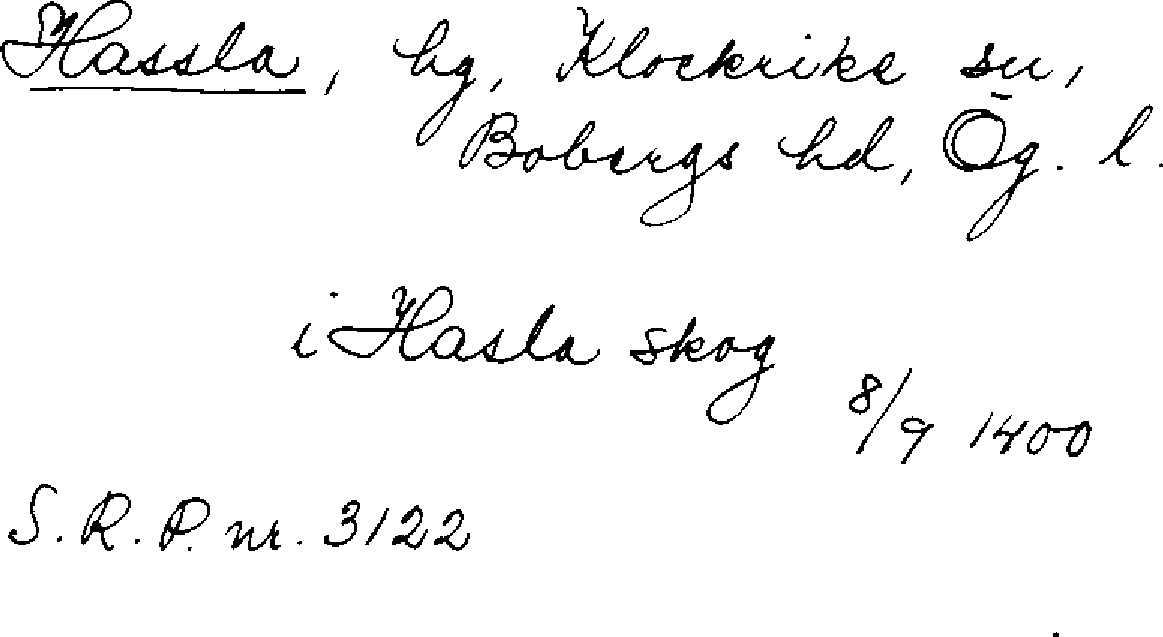 Hassla, hg, Klockrike sn,
Bobergs hd, Ög. l.
i Hasla skog
8/9 1400
S. R. P. nr. 3122